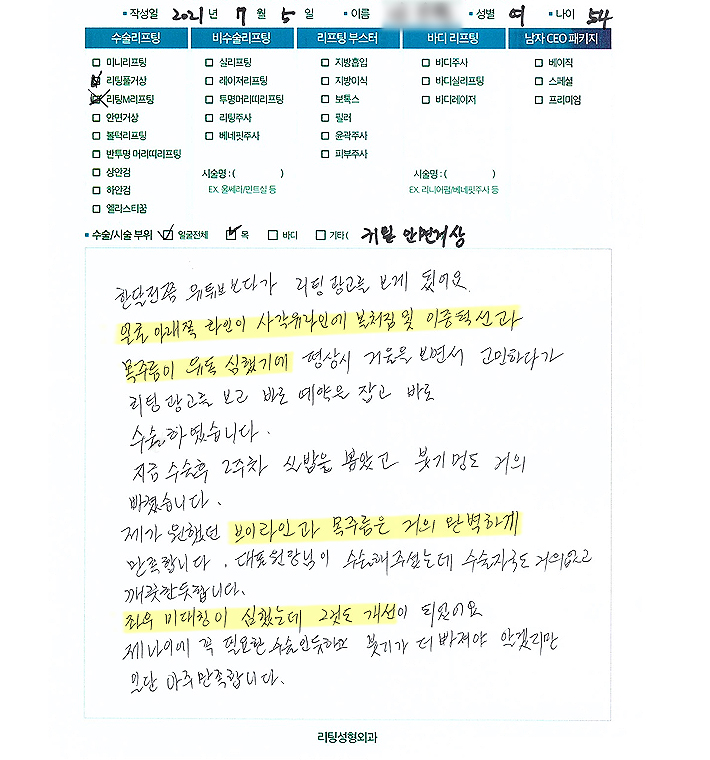 작성일 2021년 7월 5일 이름 성별 여 나이 54
수술리프팅 비수술리프팅 리프팅 부스터 바디 리프팅 남자 CEO 패키지
미니리프팅 실리프팅 지방흡입 바디주사 베이직
리팅풀거상 레이저리프팅 지방이식 바디실리프팅 스페셜
리팅M리프팅 투명머리띠리프팅 보톡스 바디레이저 프리미엄
안면거상 리팅주사 필러
볼턱리프팅 베네핏주사 윤곽주사
반투명 머리띠리프팅 피부주사
상안검 시술명 : ( ) 시술명 : ( )
하안검 EX. 울쎄라/민트실 등 EX. 리니어펌/베네핏주사 등
엘리스티꿈
수술/시술 부위 얼굴전체 목 바디 기타( 귀밑 안면거상
한달전쯤 유튜브보다가 리팅광고를 보게 됬어요.
얼굴 아래쪽 라인이 사각유라인에 볼처짐및 이중턱선과
목주름이 유독 심했기에 평상시 거울을 보면서 고민하다가
리팅광고를 보고 바로 예약을 잡고 바로
수술하였습니다.
지금 수술후 2주차 실밥을 뽑았고 붓기멍도 거의
빠졌습니다.
제가 원했던 브이라인과 목주름은 거의 완벽하게
만족합니다. 대표원장님이 수술해주셨는데 수술자국도 거의없고
깨끗한듯합니다.
좌우 비대칭이 심했는데 그것도 개선이 되었어요
제나이에 꼭 필요한 수술인듯하고 붓기가 더 빠져야 알겠지만
일단 아주만족합니다.
리팅성형외과